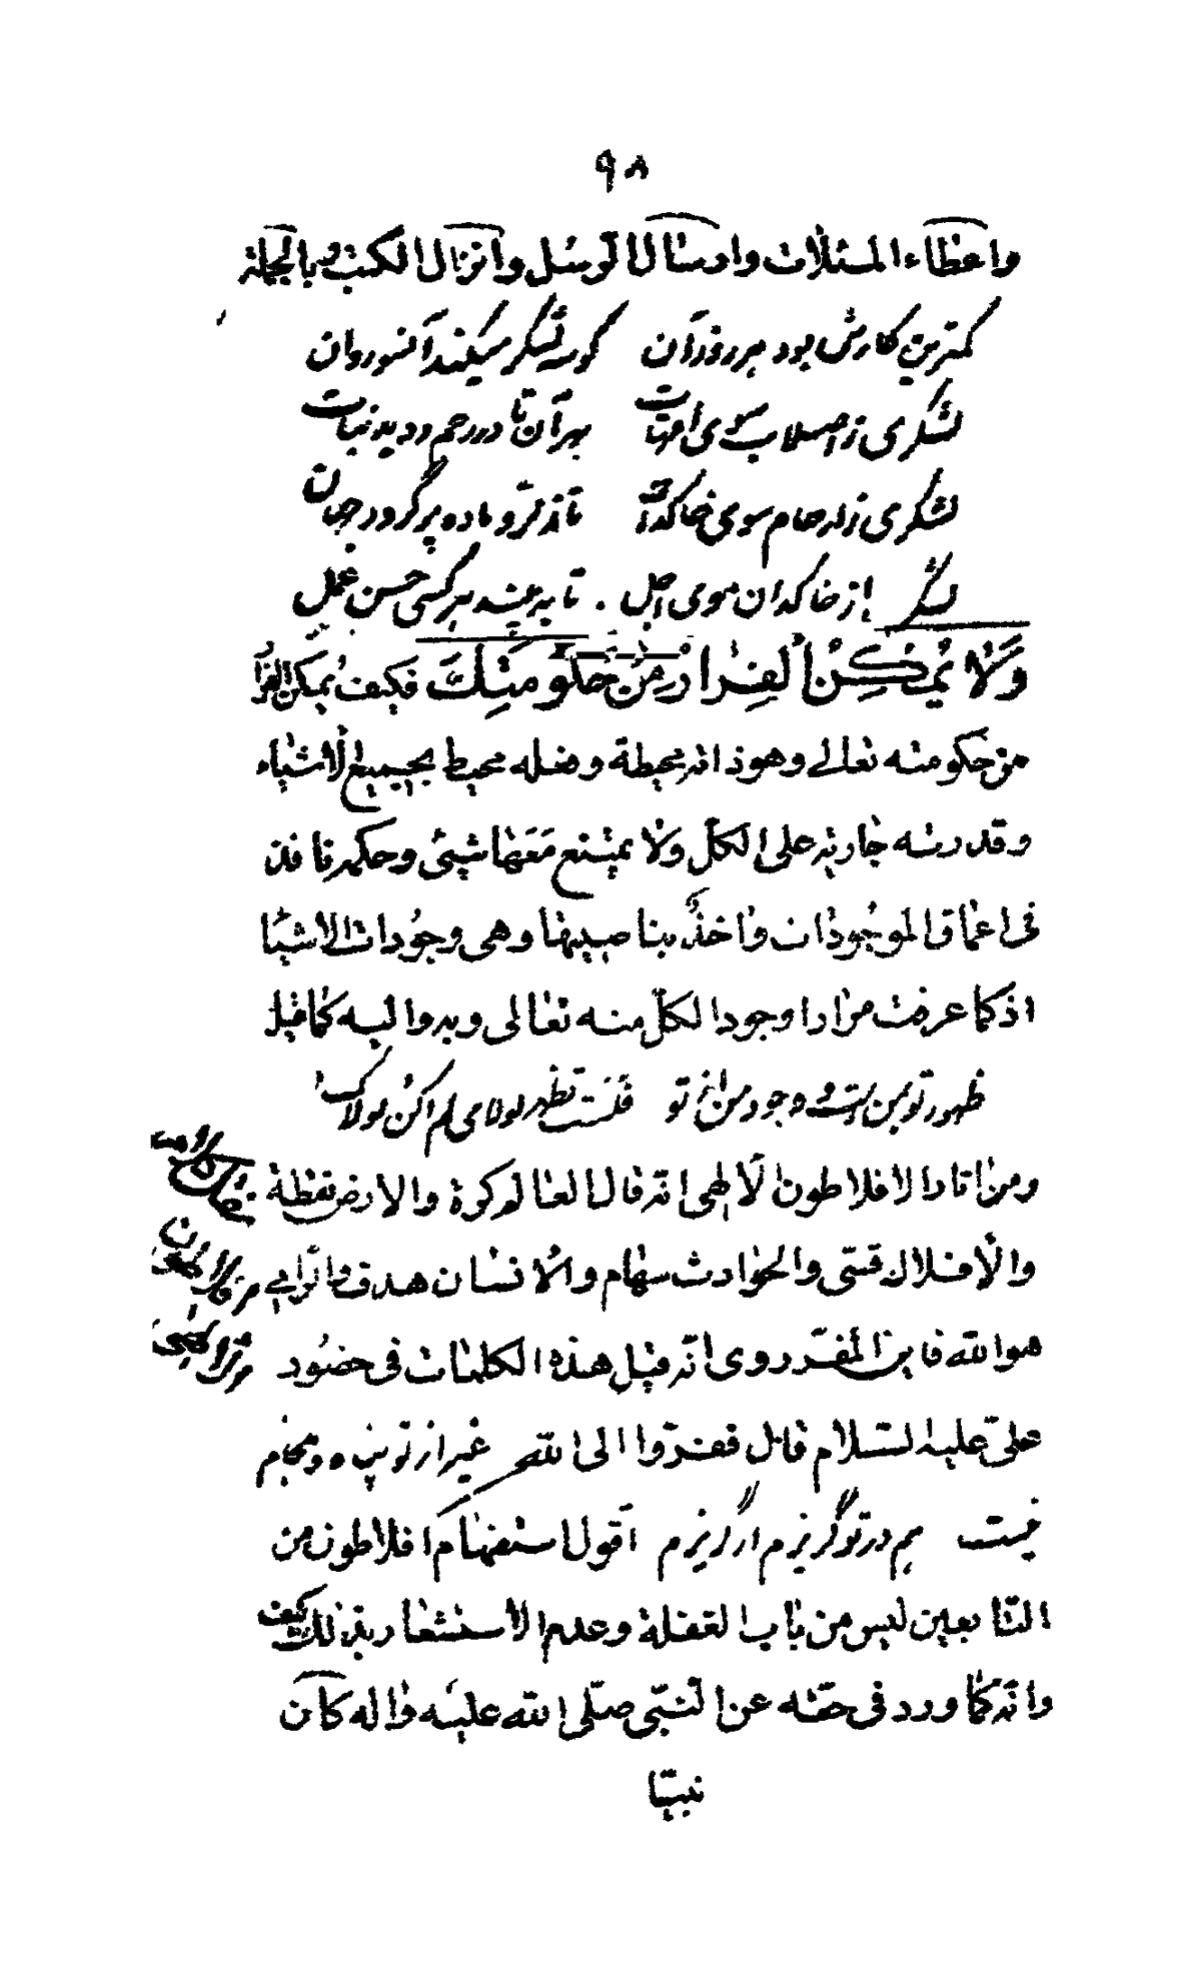 ٩٨
واعطاء المثلات وارسال الرسل وانزال الكتب وبالجملة
كمترين كارش بود هر روز آن كو سه لشكر ميكند آنسو روان
لشكرى ز اصلاب سوى امهات بهر آن تا در رحم رويد نبات
لشكرى ز ارحام سوى خاكدان تا ز نر و ماده پر گردد جهان
لشكر از خاكدان سوى اجل تا ببيند هر كسى حسن عمل
وَلا يُمْكِنُ الفِرارُ مِنْ حُكُومَتِكَ فكيف يمكن الفرار
من حكومته تعالى وهو ذاته محيطة وفضله محيط بجميع الاشياء
وقدرته جارية على الكل ولا يمتنع معها شيئ وحكمه نافذ
فى اعماق الموجودات واخذ بناصيتها وهى وجودات الاشياء
اذ كما عرفت مرارا وجود الكل منه تعالى وبه واليه كما قيل
ظهور تو بمن است و وجود من از تو فلست تظهر لولاى لم اكن لولاك
ومن اثار الافلاطون الالهى انه قال العالم كرة والارض نقطة
والافلاك قسى والحوادث سهام والانسان هدف والرامى
هو الله فاين المفر روى انه قيل هذه الكلمات فى حضور
على عليه السلام قال ففروا الى الله غير از تو پناه و ملجاام
نيست هم در تو گريزم ار گريزم اقول استفهام افلاطون من
التابعين ليس من باب الغفلة وعدم الاستشعار بذلك كيف
وانه كما ورد فى حقه عن النبى صلى الله عليه واله كان
نبيا